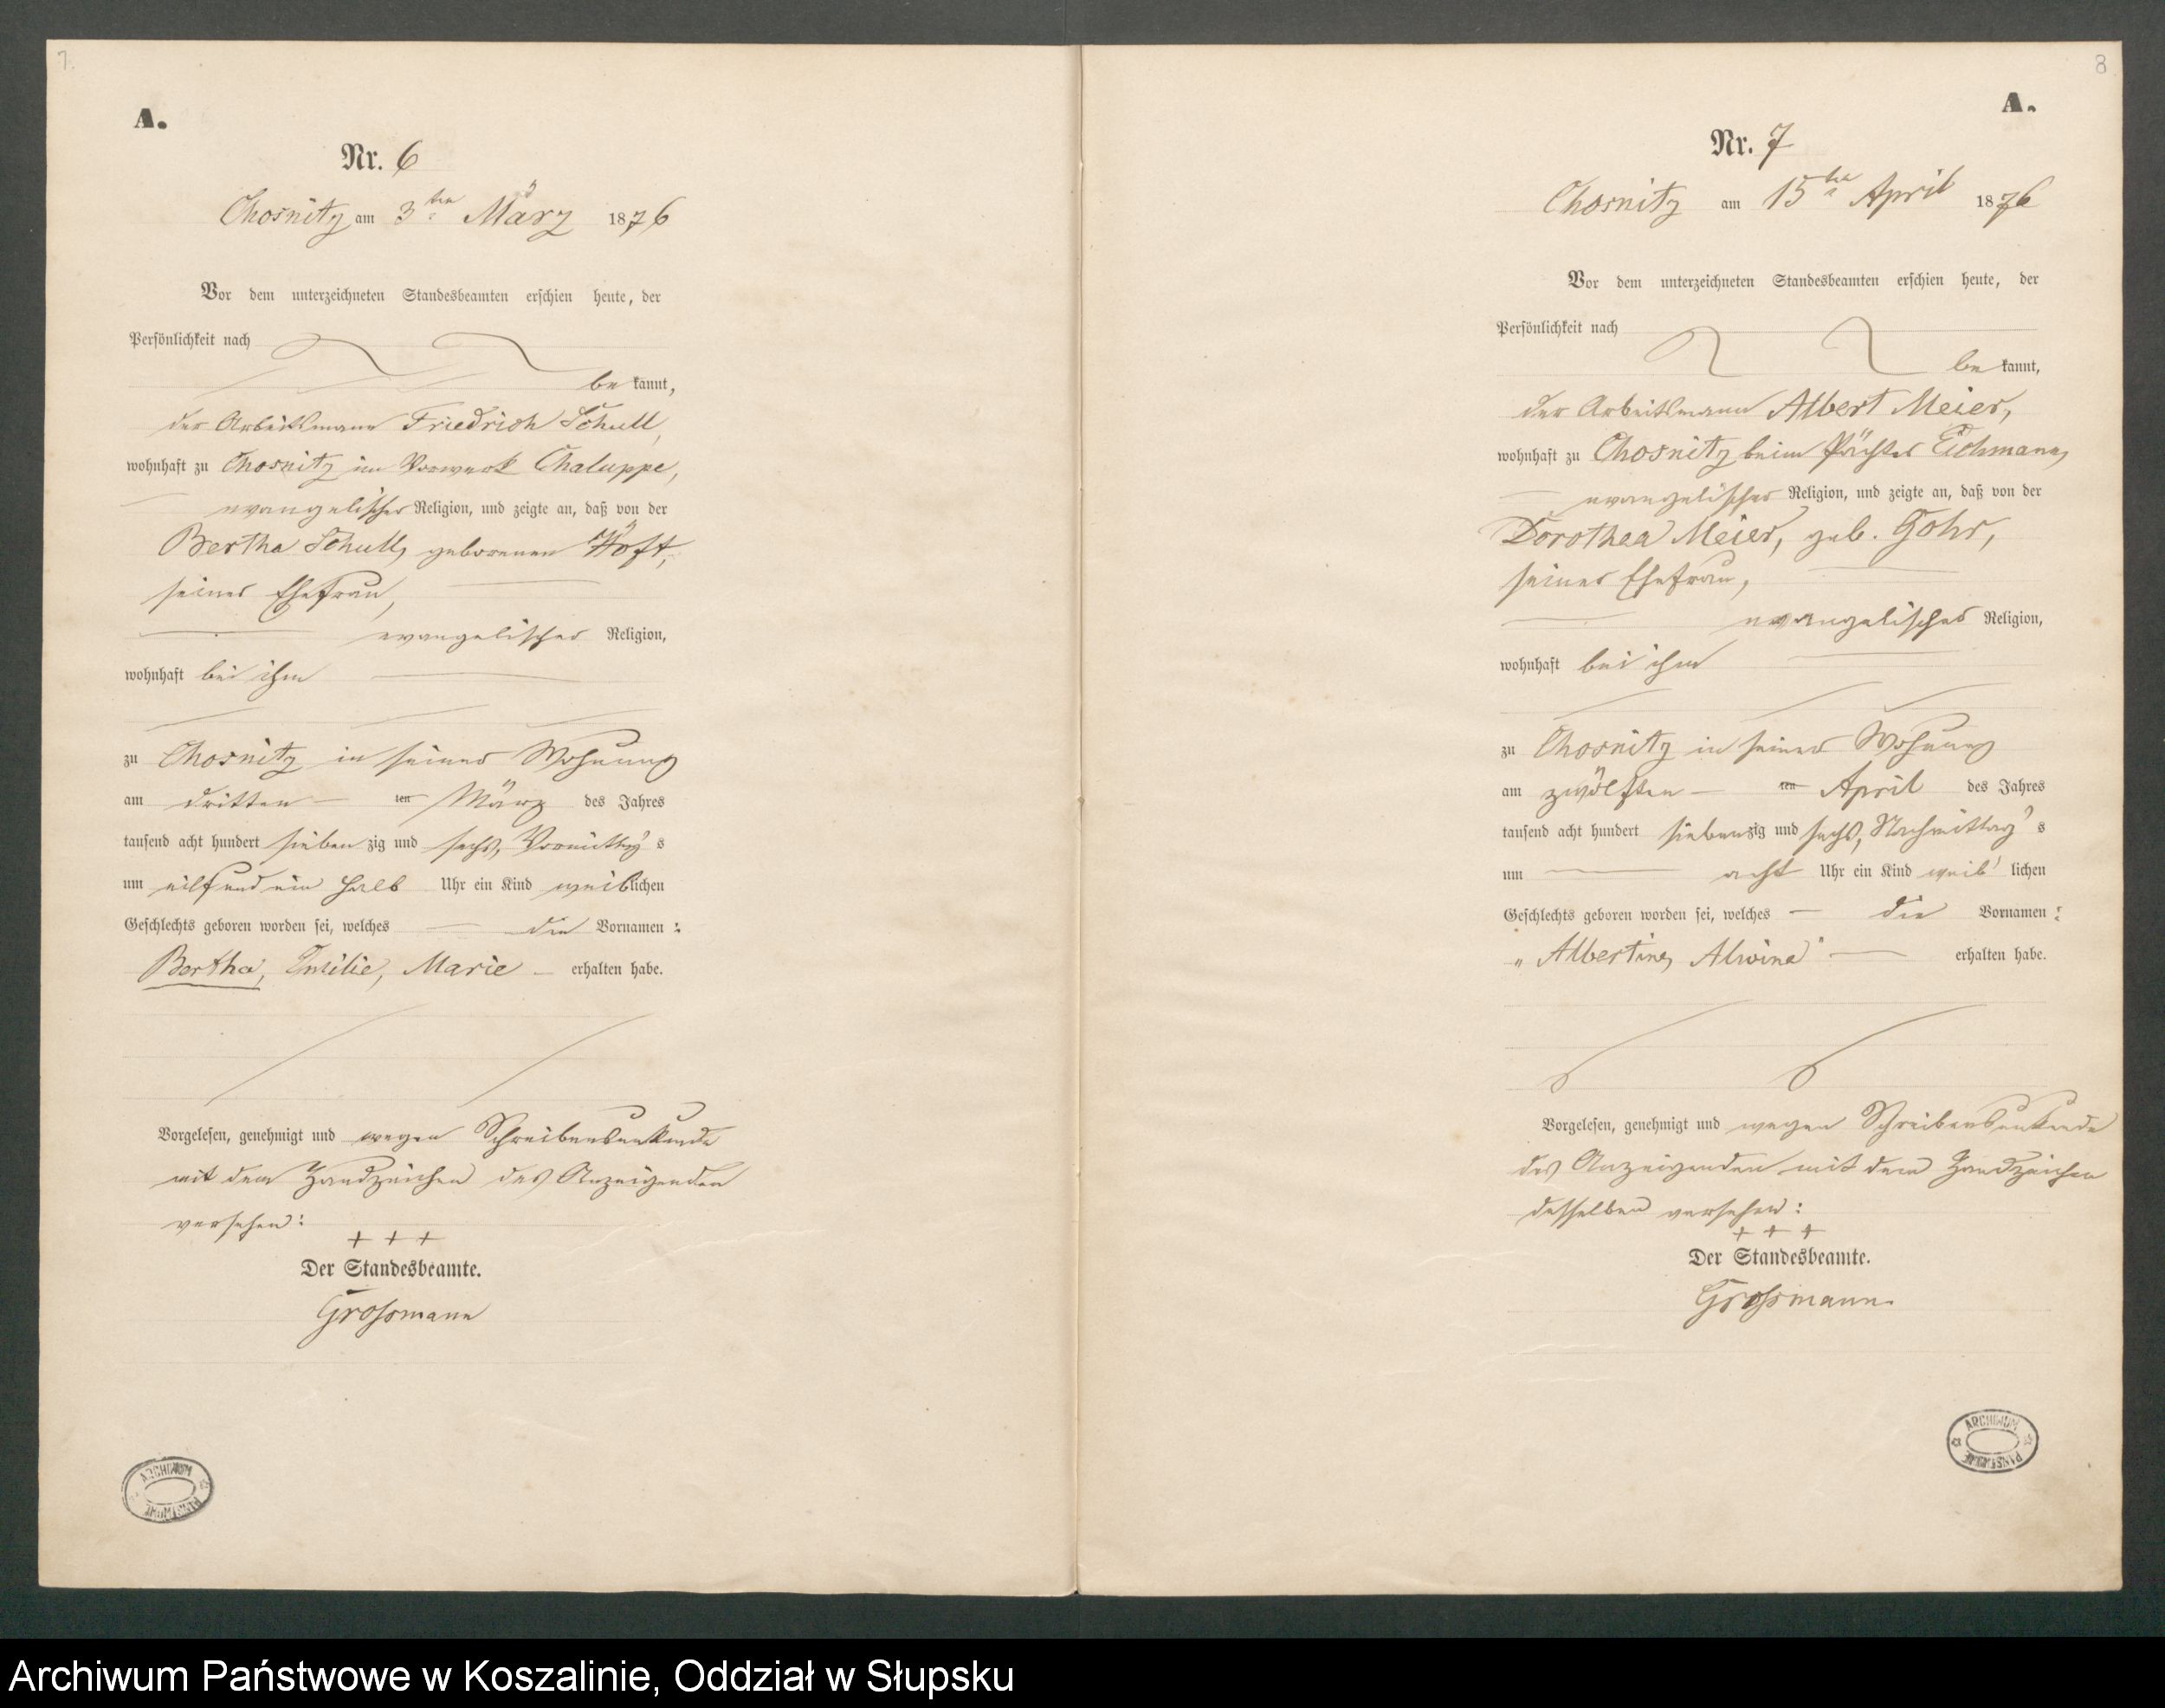 7.
A.
Nr. 6
Chosnitz am 3ten März 1876
Vor dem unterzeichneten Standesbeamten erschien heute, der
Persönlichkeit nach
be kannt,
der Arbeitsmann Friedrich Schull,
wohnhaft zu Chosnitz im Vorwerk Chaluppe,
evangelischer Religion, und zeigte an, daß von der
Bertha Schull, geborenen Höft,
seiner Ehefrau,
evangelischer Religion,
wohnhaft bei ihm
zu Chosnitz in seiner Wohnung
am dritten ten März des Jahres
tausend acht hundert sieben zig und sechs, Vormittag s
um eilf und ein halb Uhr ein Kind weiblichen
Geschlechts geboren worden sei, welches die Vornamen:
Bertha, Emilie, Marie erhalten habe.
Vorgelesen, genehmigt und wegen Schreibensunkunde
mit dem Handzeichen des Anzeigenden
versehen:
+ + +
Der Standesbeamte.
Grossmann
ARCHIWUM PAŃSTWOWE
8
A.
Nr. 7
Chosnitz am 15ten April 1876
Vor dem unterzeichneten Standesbeamten erschien heute, der
Persönlichkeit nach
be kannt,
der Arbeitsmann Albert Meier,
wohnhaft zu Chosnitz beim Pächter Eichmann,
evangelischer Religion, und zeigte an, daß von der
Dorothea Meier, geb. Gohr,
seiner Ehefrau,
evangelischer Religion,
wohnhaft bei ihm
zu Chosnitz in seiner Wohnung
am zwölften ten April des Jahres
tausend acht hundert siebenzig und sechs, Nachmittag s
um acht Uhr ein Kind weib lichen
Geschlechts geboren worden sei, welches die Vornamen:
"Albertine, Alwine" erhalten habe.
Vorgelesen, genehmigt und wegen Schreibensunkunde
des Anzeigenden mit dem Handzeichen
desselben versehen:
+ + +
Der Standesbeamte.
Grossmann.
ARCHIWUM PAŃSTWOWE
Archiwum Państwowe w Koszalinie, Oddział w Słupsku